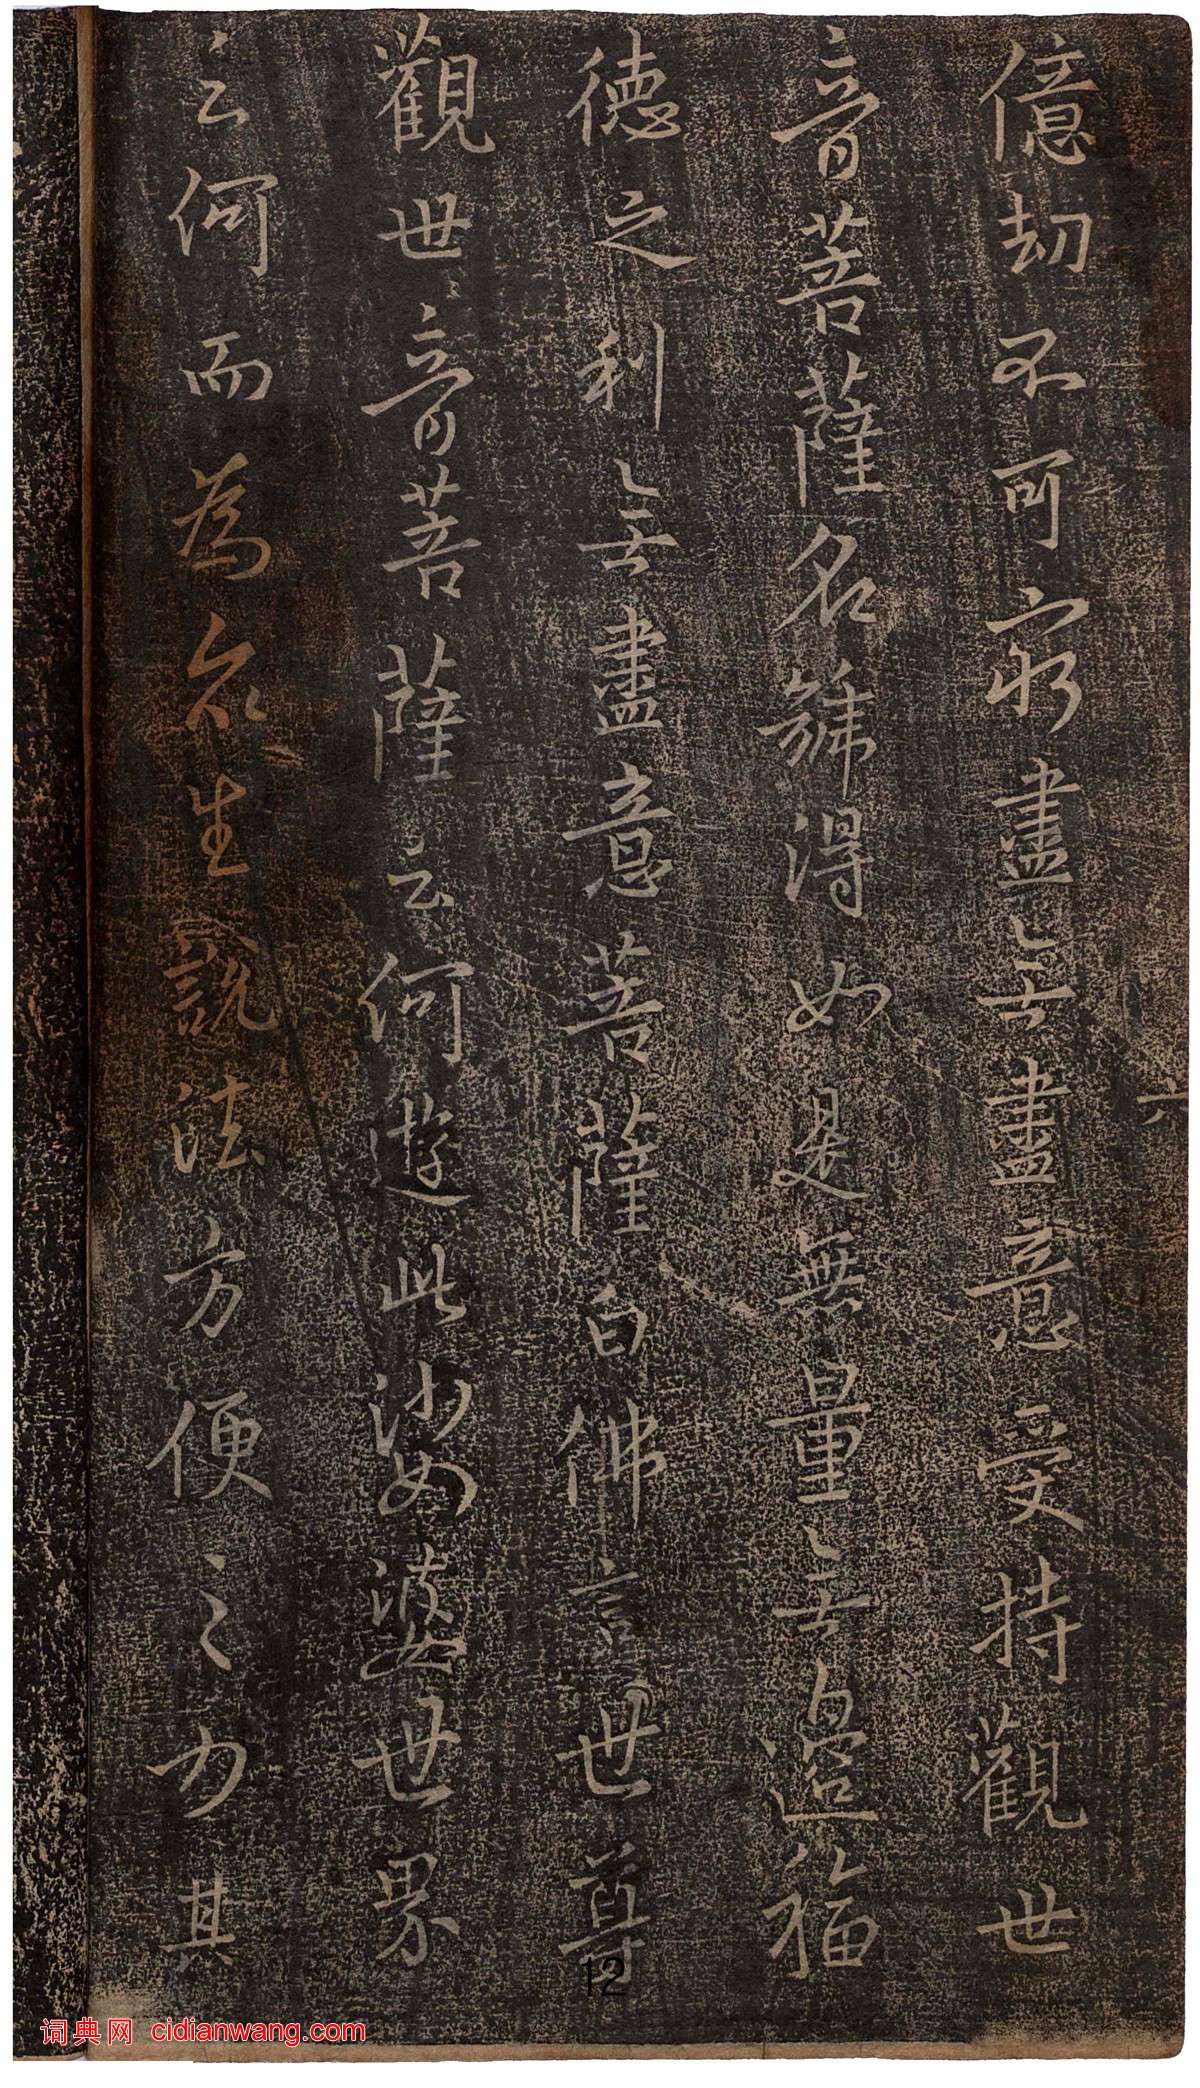 億劫不可窮盡无盡意受持觀世
音菩薩名號得如是無量无邊福
德之利无盡意菩薩白佛言世尊
觀世音菩薩云何遊此娑婆世界
云何而為众生説法方便之力其
六
12
词典网 cidianwang.com